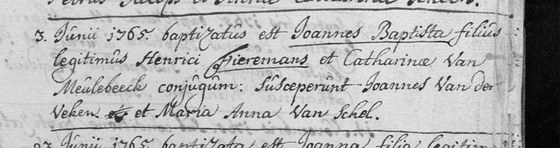 3. Junii 1765. baptizatus est Joannes Baptista filius
legitimus Henrici Fieremans et Catharinæ Van
Meulebeeck conjugum: Susceperunt Joannes Van der
Veken. et Maria Anna Van Schel.
Junii 1765 baptizata est Joanna filia legitim